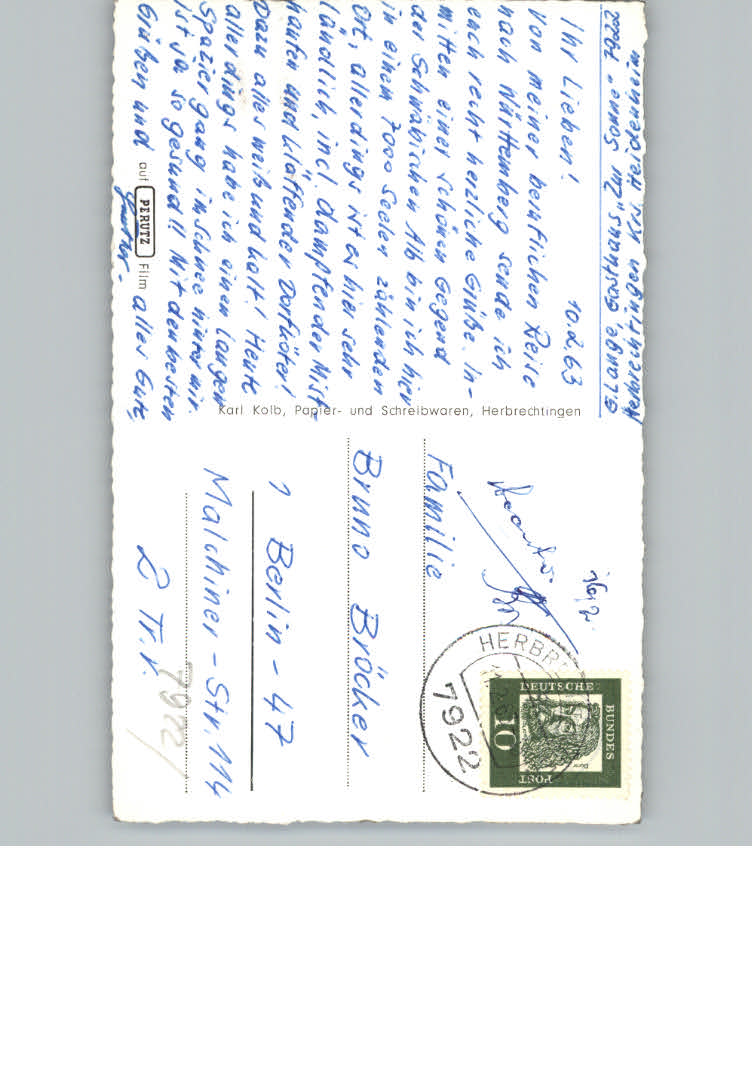 G. Lange, Gasthaus "Zur Sonne" 7922
Herbrechtingen Krs. Heidenheim
10.2.63
Ihr Lieben!
Von meiner beruflichen Reise
nach Württemberg sende ich
euch recht herzliche Grüße. In-
mitten einer schönen Gegend
der Schwäbischen Alb bin ich hier
in einem 7000 Seelen zählenden
Ort, allerdings ist es hier sehr
ländlich, incl. dampfender Mist-
haufen und kläffender Dorfköter!
Dazu alles weiß und kalt! Heute
allerdings habe ich einen langen
Spaziergang im Schnee hinter mir.
Ist ja so gesund!! Mit den besten
Grüßen und alles Gute
auf PERUTZ Film
Karl Kolb, Papier- und Schreibwaren, Herbrechtingen
Familie
Bruno Bröcker
1 Berlin - 47
Malchiner - Str. 114
2 Tr. r.
7922
HERBR
7922
DEUTSCHE
BUNDES
POST
10